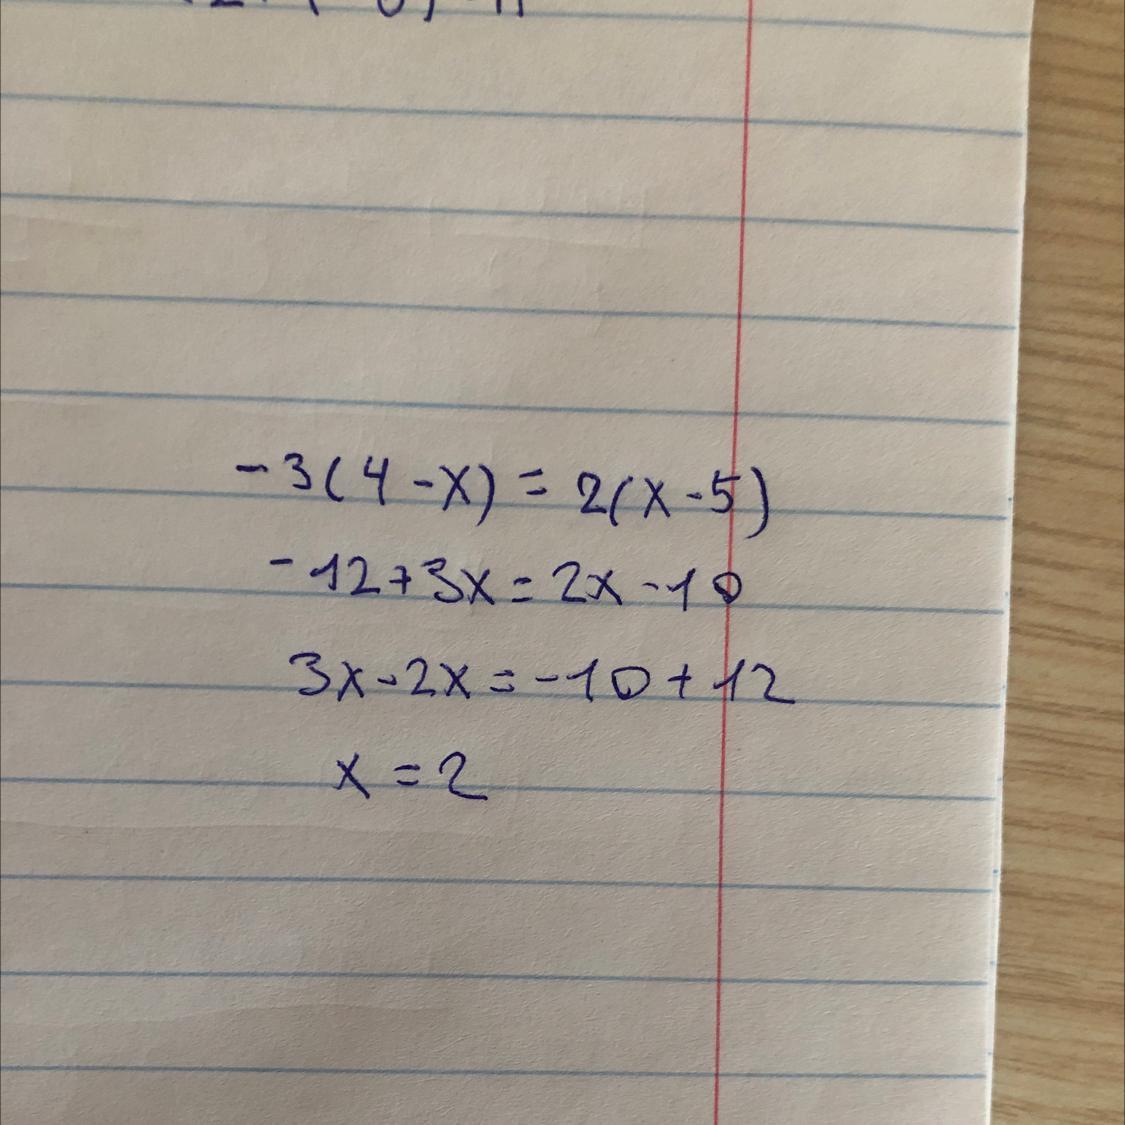 -3(4-x) = 2(x-5)
-12+3x=2x-10
3x-2x=-10+12
x=2